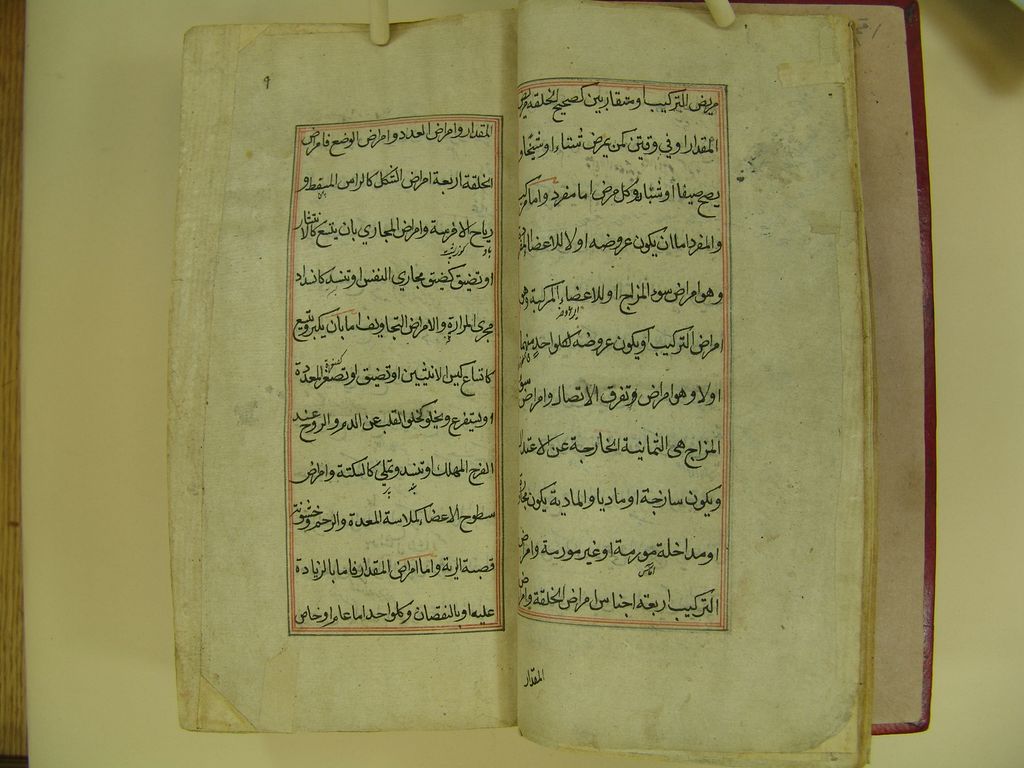 مريض التركيب او متقاربين كصحيح الخلقة مريض
المقدار او في وقتين كمن يمرض شتاء او شيخا و
يصح صيفا او شبابا وكل مرض اما مفرد واما مركب
والمفرد اما ان يكون عروضه اولا للاعضاء المفردة
وهو امراض سوء المزاج او للاعضاء المركبة وهى
امراض التركيب او يكون عروضه لكلواحد منهما
اولا وهو امراض تفرق الاتصال وامراض سوء
المزاج هى الثمانية الخارجة عن الاعتدال
ويكون ساذجة او ماديا والمادية يكون مجاورة
او مداخلة مورمة او غير مورمة وامراض
التركيب اربعة اجناس امراض الخلقة وامراض
المقدار
٩
المقدار وامراض العدد وامراض الوضع فامراض
الخلقة اربعة امراض الشكل كالراس المسفط و
رياح الافرسة وامراض المجاري بان يتسع كالانتشار
او تضيق كضيق مجاري النفس او تنسد كانسداد
مجرى المرارة والامراض التجاويف اما بان يكبر ويتسع
كاتساع كيس الانثيين او تضيق او تصغر المعدة
او يستفرغ ويخلو كخلو القلب عن الدم والروح عند
الفرح المهلك او تنسد ويمتلي كالسكتة وامراض
سطوح الاعضاء كملاسة المعدة والرحم وخشونة
قصبة الرية واما امراض المقدار فاما بالزيادة
عليه او بالنقصان وكلواحد اما عام او خاص